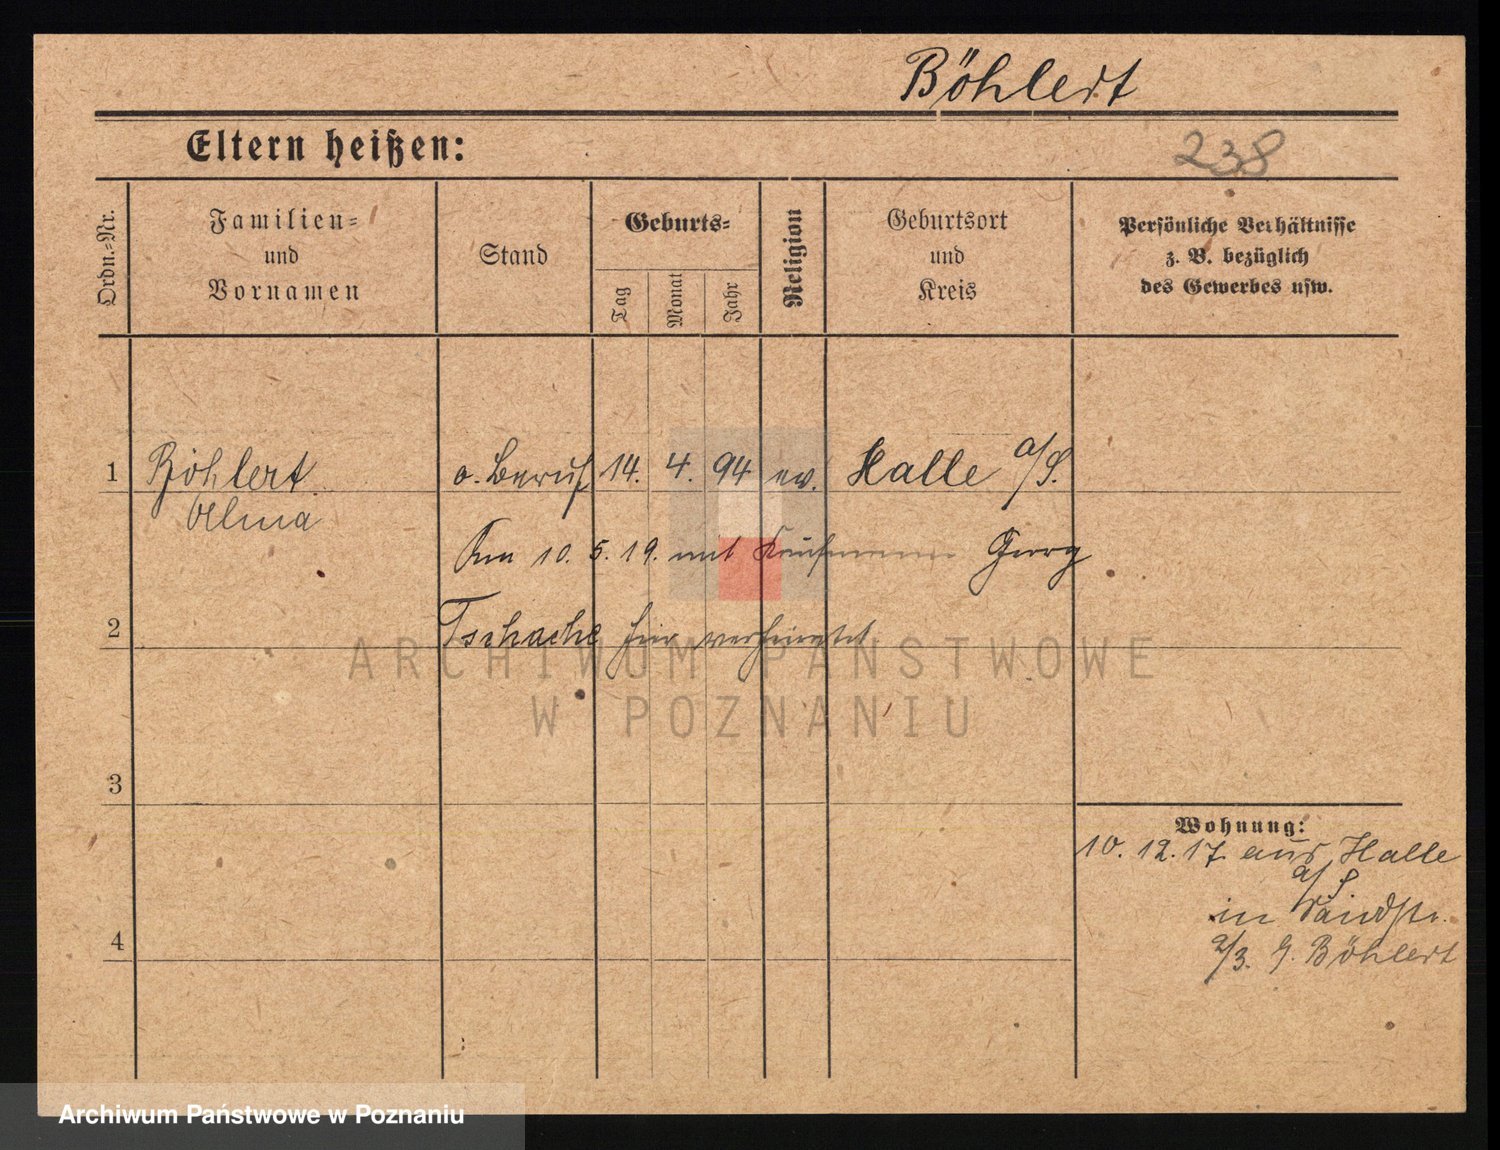 Böhlert
Eltern heißen:
238
Ordn.=Nr.
Familien=
und
Vornamen
Stand
Geburts=
Tag
Monat
Jahr
Religion
Geburtsort
und
Kreis
Persönliche Verhältnisse
z. B. bezüglich
des Gewerbes usw.
1 Böhlert o. Beruf 14. 4. 94 ev. Halle a/S.
Alma
Am 10. 5. 19. mit Kaufmann Georg
2 Tschache hier verheiratet
ARCHIWUM PAŃSTWOWE
W POZNANIU
3
Wohnung:
10. 12. 17. aus Halle
a/S.
in Sandstr.
4
2/3. b. Böhlert
Archiwum Państwowe w Poznaniu